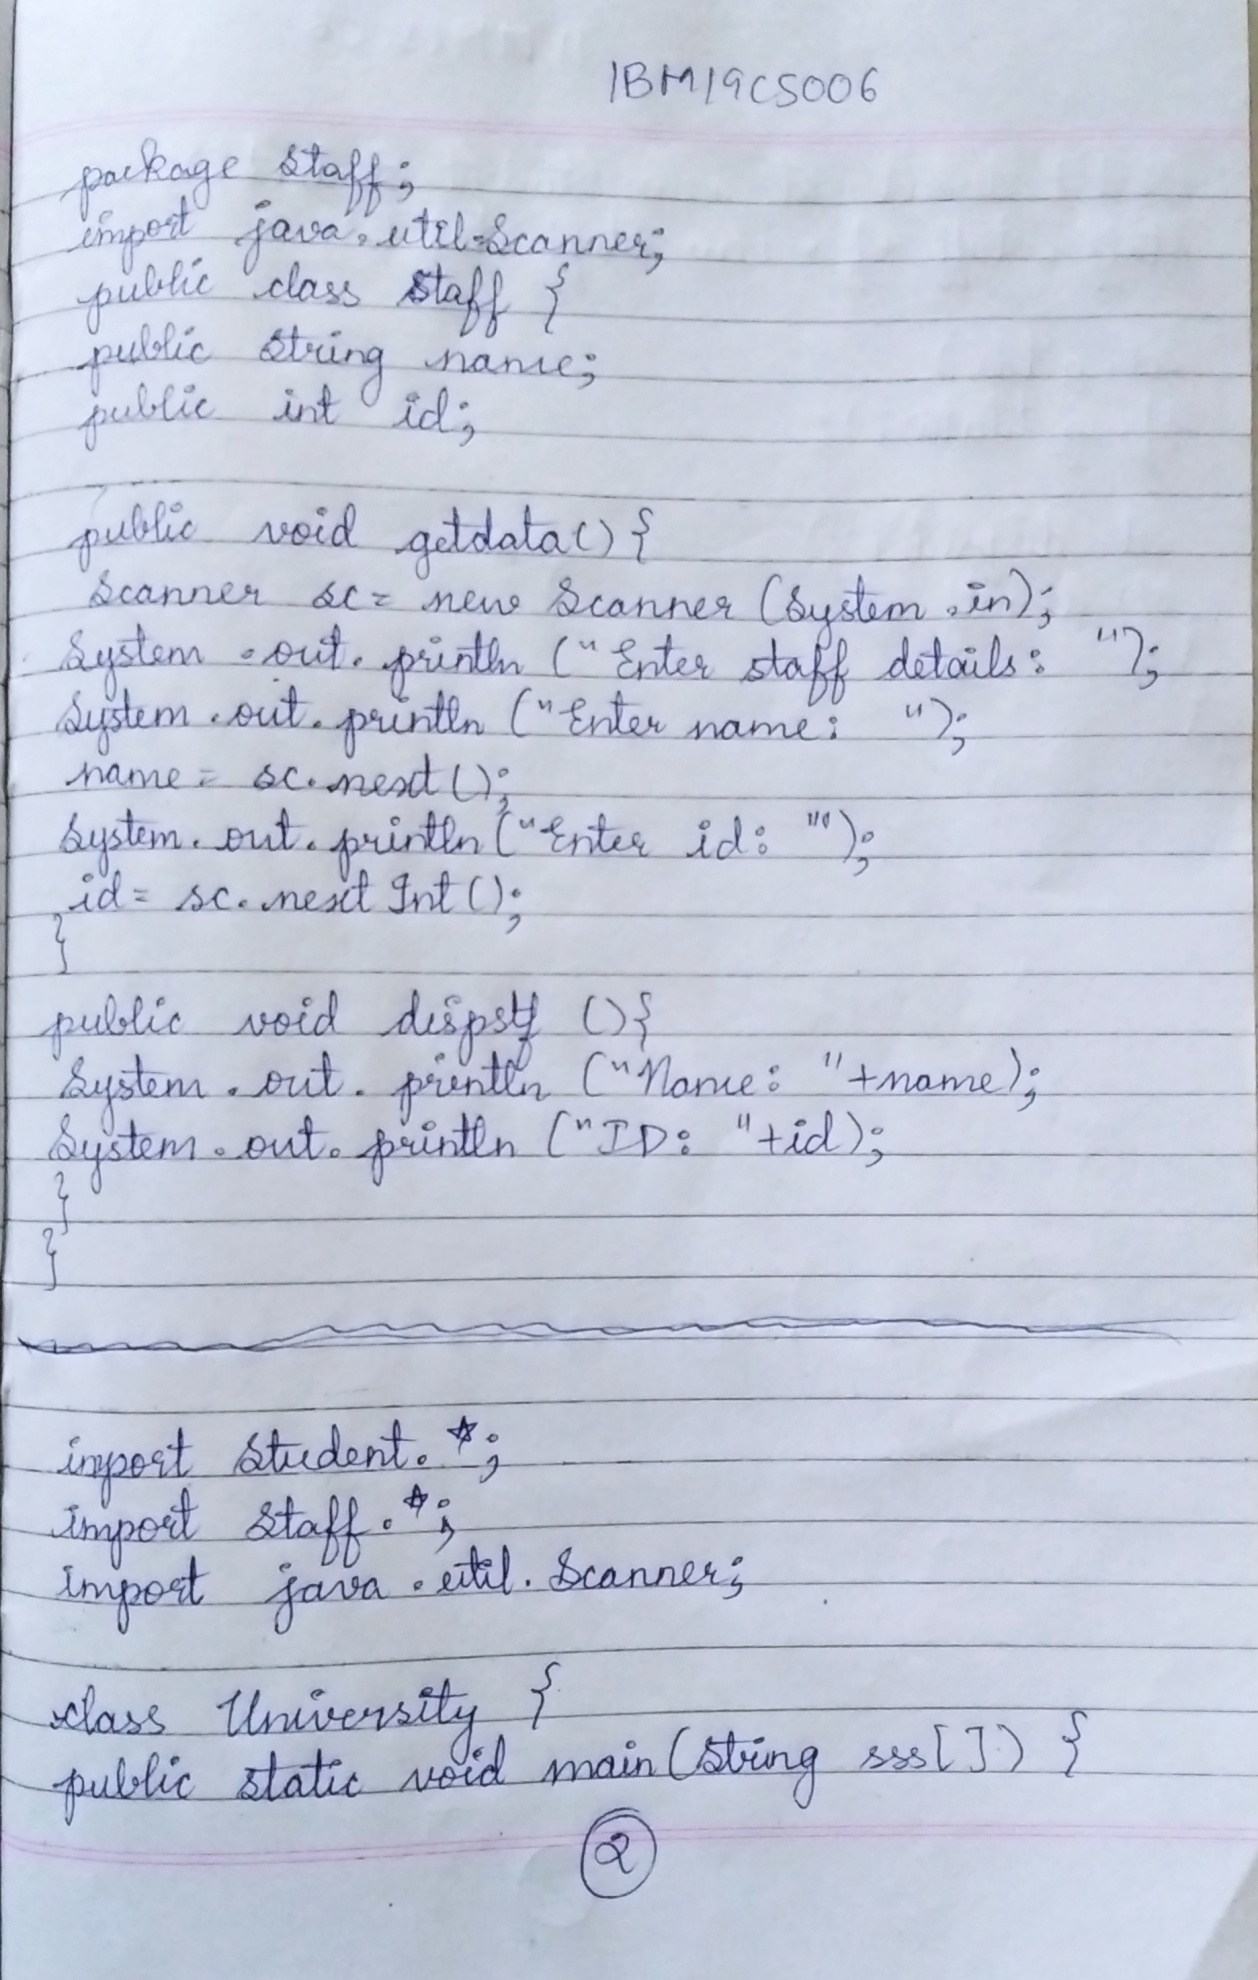 1BM19CS006
package staff;
import java.util.Scanner;
public class staff {
public String name;
public int id;
public void getdata() {
Scanner sc = new Scanner (System.in);
System.out.println ("Enter staff details: ");
System.out.println ("Enter name: ");
name = sc.next();
System.out.println ("Enter id: ");
id = sc.nextInt();
}
public void dispstf () {
System.out.println ("Name: "+name);
System.out.println ("ID: "+id);
}
}
import student.*;
import staff.*;
import java.util.Scanner;
class University {
public static void main(String sss[]) {
2